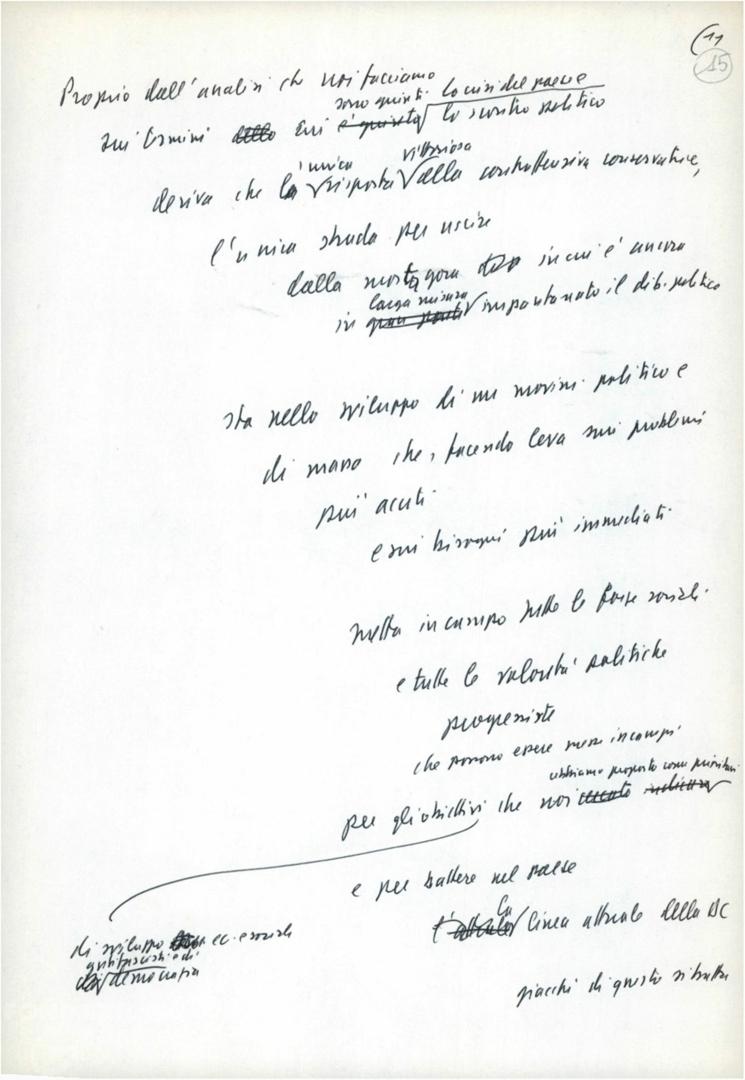 (11
15
Proprio dall'analisi che noi facciamo
sono giunti la crisi del paese e
sui termini dello cui è giunto lo scontro politico
l'unica vittoriosa
deriva che la risposta alla controffensiva conservatrice,
l'unica strada per uscire
dalla morta gora in cui è ancora
larga misura
in gran parte impantanato il dib. politico
sta nello sviluppo di un movim. politico e
di massa che, facendo leva sui problemi
più acuti
e sui bisogni più immediati
metta in campo tutte le forze sociali
e tutte le volontà politiche
progressiste
che possono essere messe in campo
abbiamo proposto come prioritari
per gli obiettivi che noi
e per battere nel paese
La
l'attuale linea attuale della DC
di sviluppo ec. e sociale
antifascisti e di
democrazia
giacché di questo si tratta